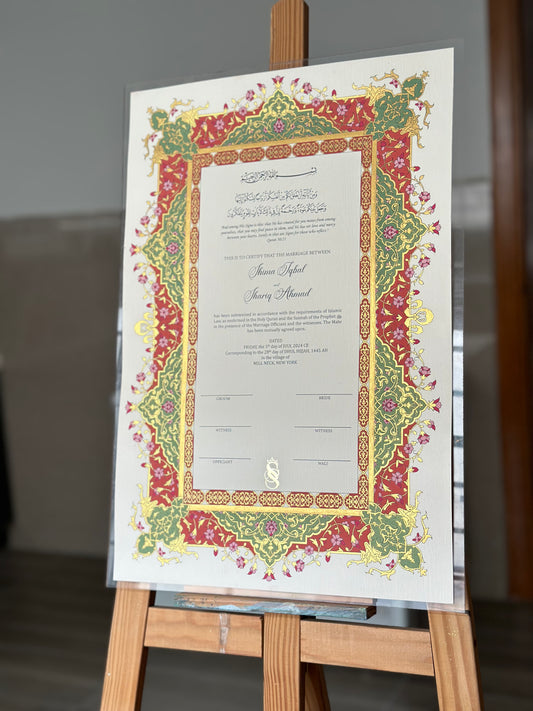 بسم الله الرحمن الرحيم
"And among His Signs is this: that He has created for you mates from among
yourselves, that you may find peace in them, and He has set love and mercy
between your hearts. Surely in that are Signs for those who reflect."
Quran 30:21
THIS IS TO CERTIFY THAT THE MARRIAGE BETWEEN
Shima Iqbal
and
Shariq Ahmad
has been solemnised in accordance with the requirements of Islamic
Law as enshrined in the Holy Quran and the Sunnah of the Prophet ﷺ
in the presence of the Marriage Officiant and the witnesses. The Mahr
has been mutually agreed upon.
DATED
FRIDAY, the 5th day of JULY, 2024 CE
Corresponding to the 29th day of DHUL HIJJAH, 1445 AH
in the village of
MILL NECK, NEW YORK
GROOM BRIDE
WITNESS WITNESS
OFFICIANT WALI